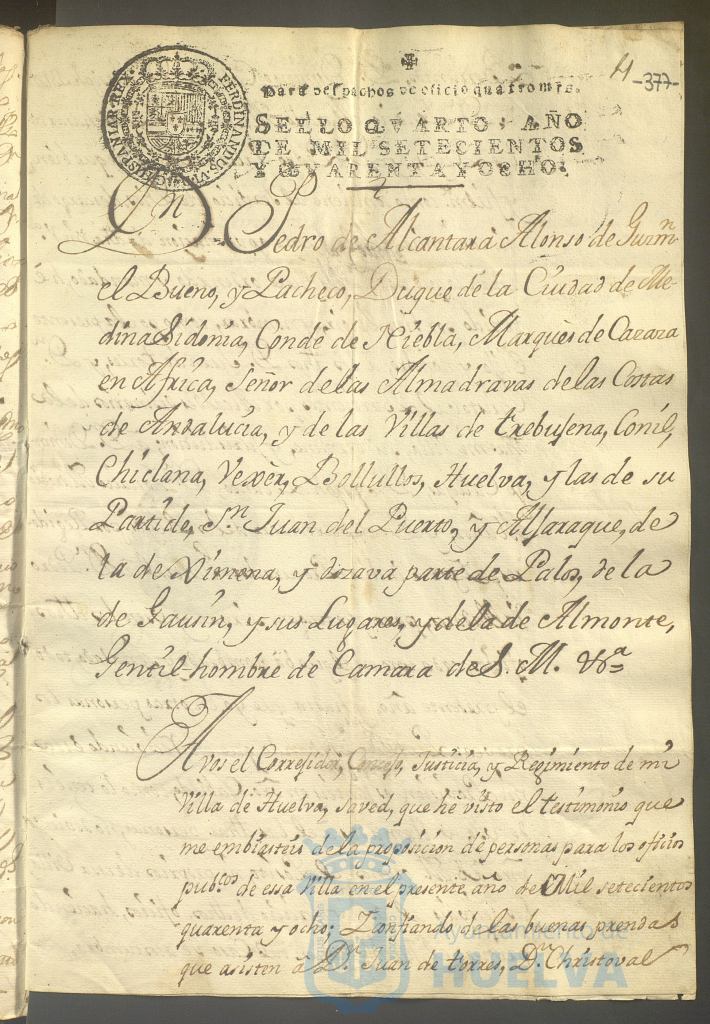 H -377-
✠
Para despachos de oficio quatro mrs.
SELLO QVARTO, AÑO
DE MIL SETECIENTOS
Y QVARENTA Y OCHO.
FERDINANDUS·VI·D·G·HISPANIAR·REX·
Dn. Pedro de Alcantara Alonso de Guzmn.
el Bueno, y Pacheco, Duque de la Ciudad de Me-
dina Sidonia, Conde de Niebla, Marquès de Cazaza
en Africa, Señor de las Almadravas de las Costas
de Andalucia, y de las Villas de trebuJena, Conil,
Chiclana, Vexèr, Bollullos, Huelva, y las de su
Partido, Sn. Juan del Puerto, y AlJaraque, de
la de Ximena, y dozava parte de Palos, de la
de Gausin, y sus Lugares, y de la de Almonte,
Gentil-hombre de Camara de S. M. &a
A vos el CorreJidor, ConceJo, Justicia, y ReJimiento de mi
Villa de Huelva, Saved, que hè visto el testimonio que
me embiasteis de la proposicion de personas para los oficios
pubcos de essa Villa en el presente año de Mil setecientos
quarenta y ocho; Y confiando de las buenas prendas
que asisten à Dn. Juan de torres, Dn. Christoval
Ayuntamiento de
HUELVA